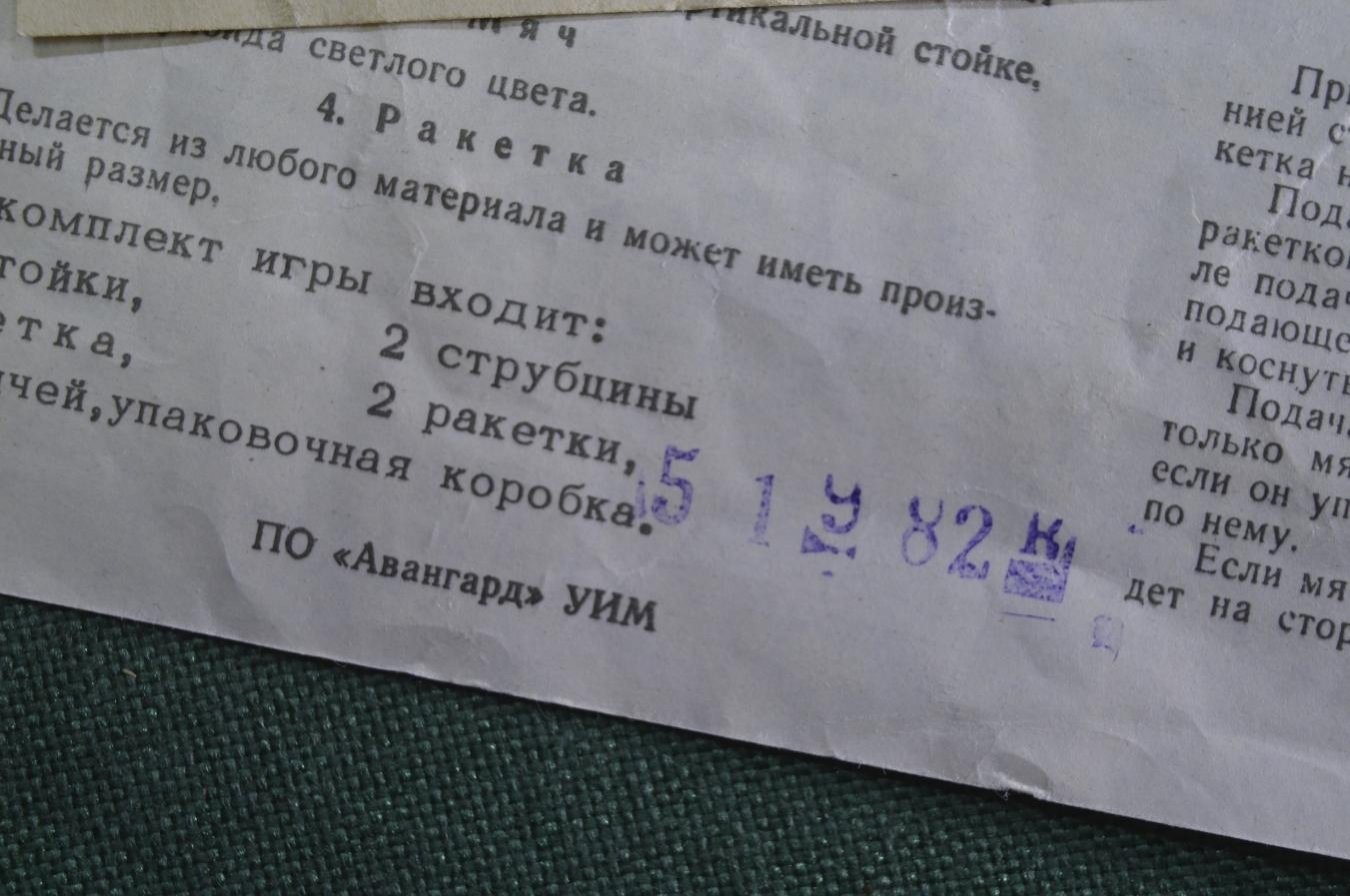 Мяч
светлого цвета.
4. Ракетка
Делается из любого материала и может иметь произ-
ный размер.
комплект игры входит:
тойки,
2 струбцины
етка,
2 ракетки,
чей, упаковочная коробка.
ПО «Авангард» УИМ
5 1 9 82
ртикальной стойке,
При
нией с
кетка н
Пода
ракетко
ле подач
подающе
и коснуть
Подача
только мя
если он уп
по нему.
Если мя
дет на стор